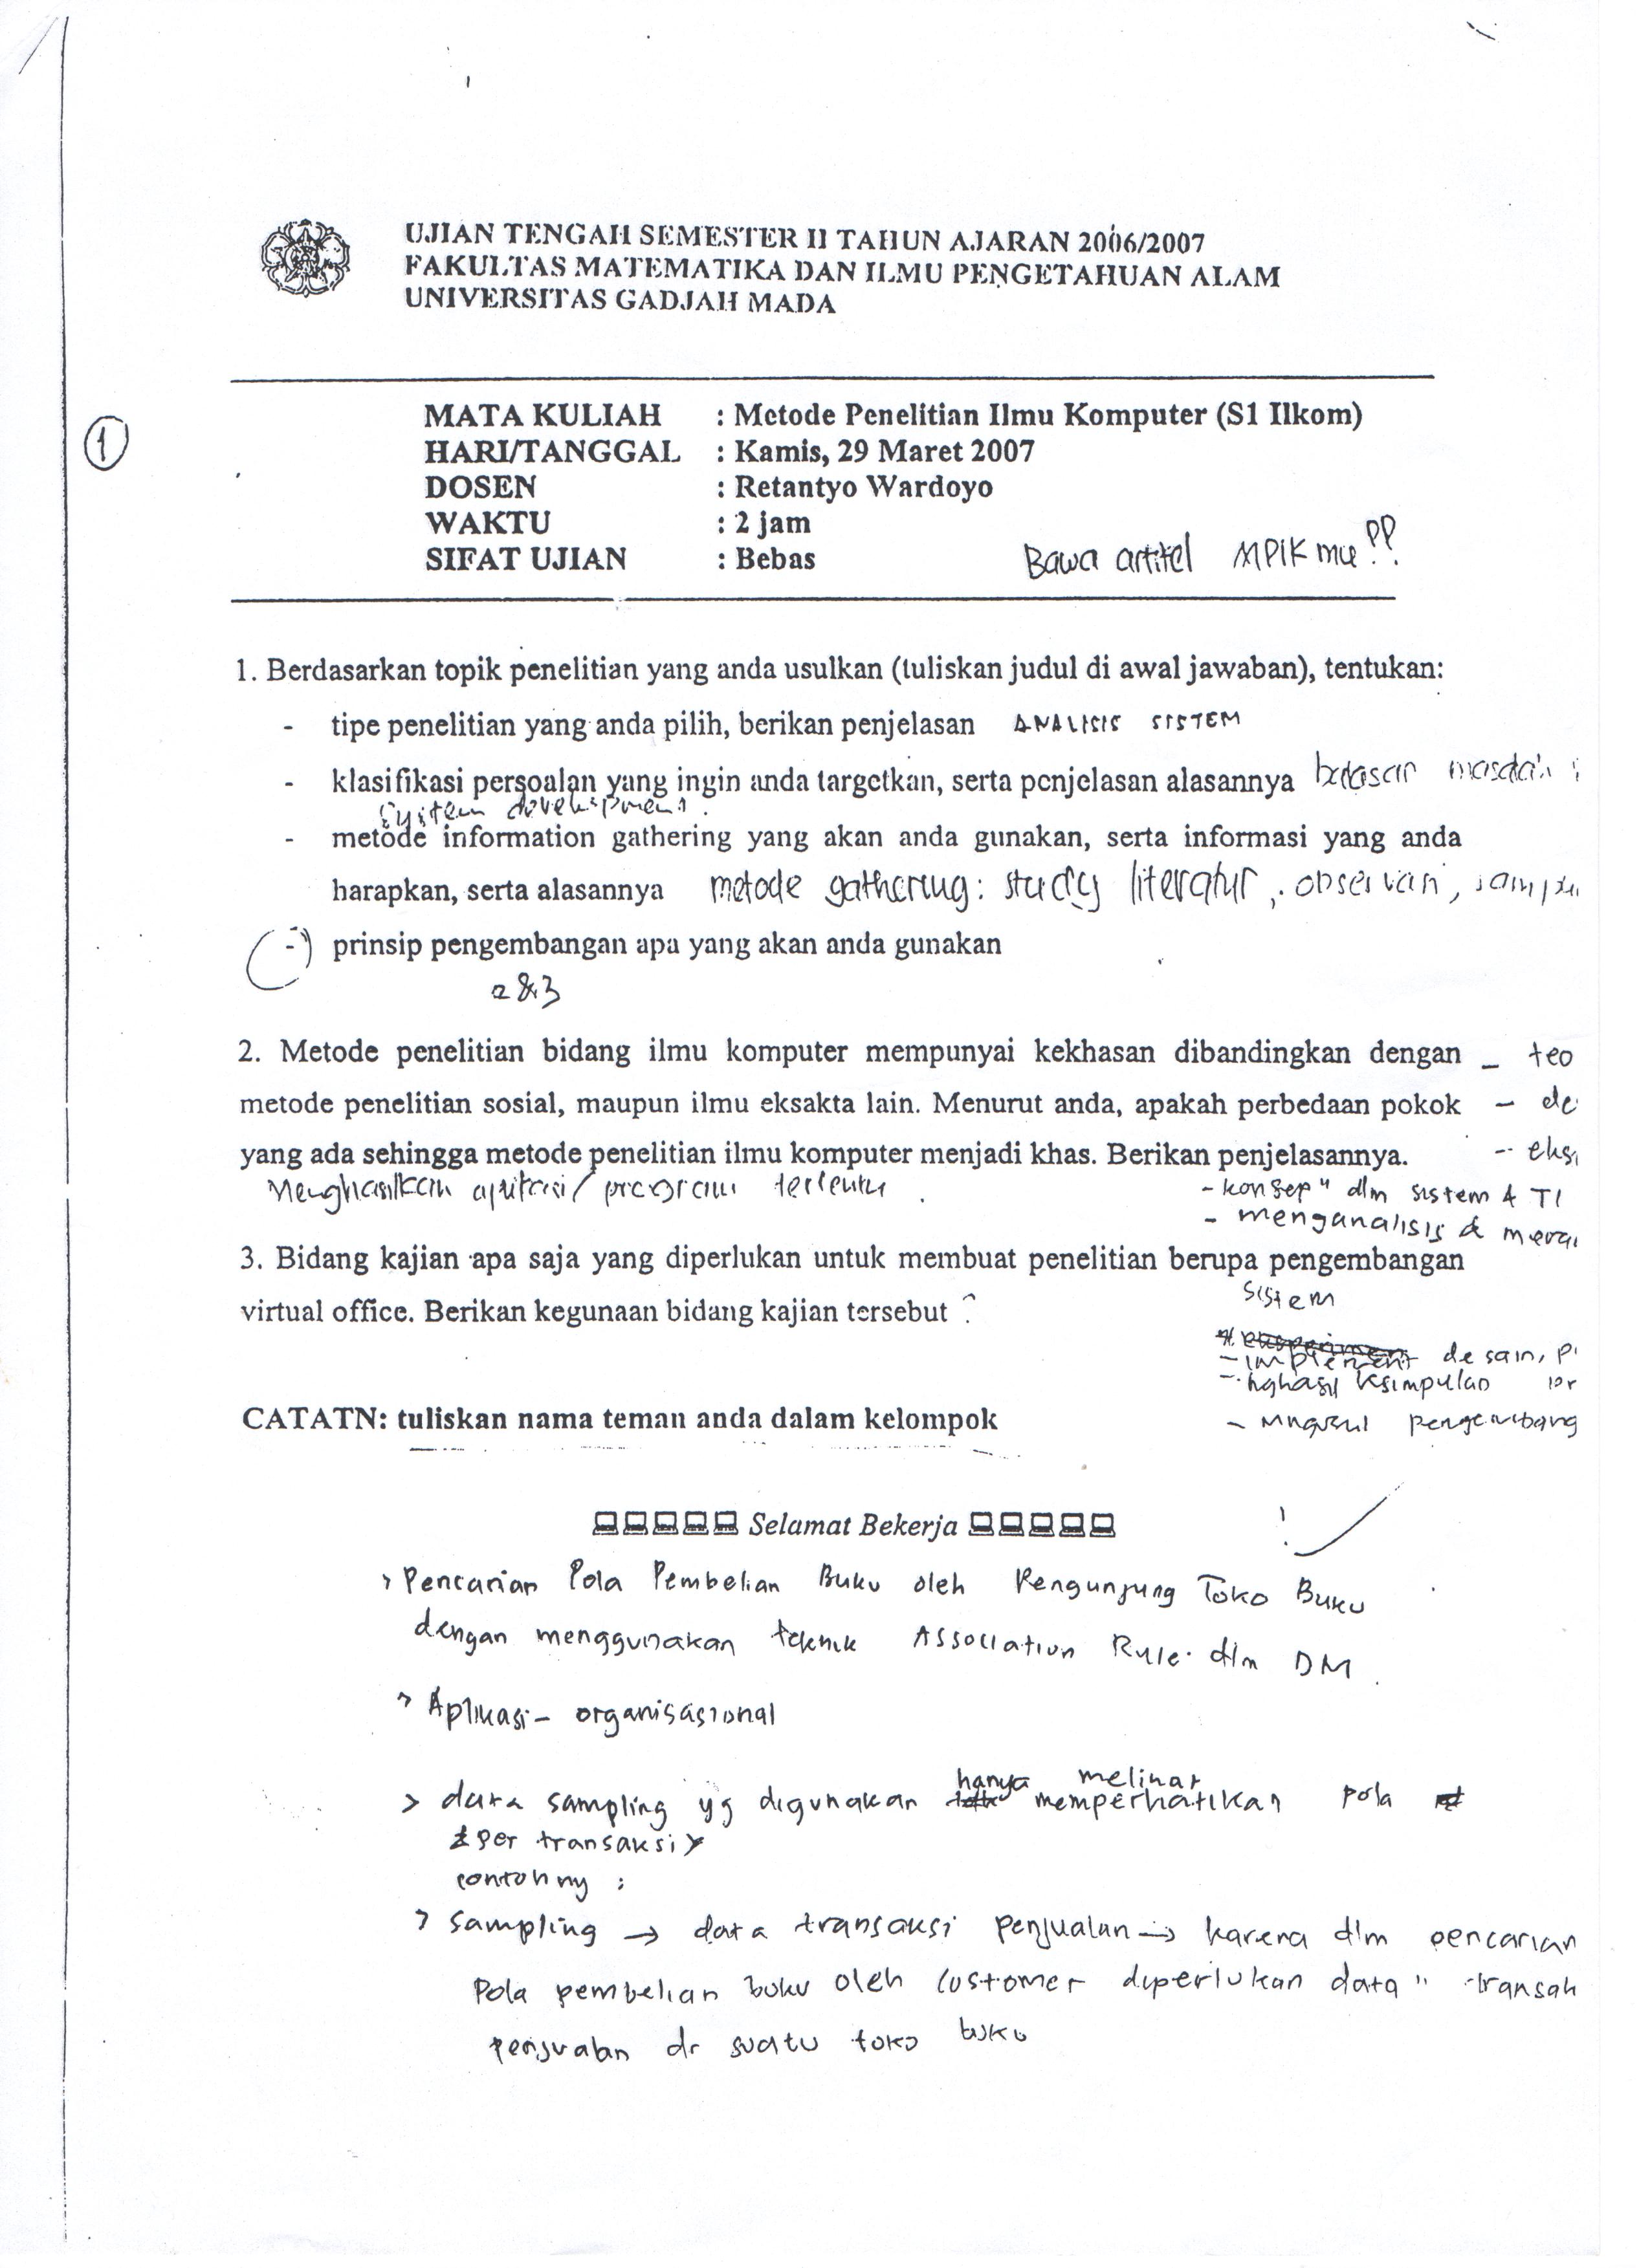 UJIAN TENGAH SEMESTER II TAHUN AJARAN 2006/2007
FAKULTAS MATEMATIKA DAN ILMU PENGETAHUAN ALAM
UNIVERSITAS GADJAH MADA
1
MATA KULIAH : Metode Penelitian Ilmu Komputer (S1 Ilkom)
HARI/TANGGAL : Kamis, 29 Maret 2007
DOSEN : Retantyo Wardoyo
WAKTU : 2 jam
SIFAT UJIAN : Bebas Bawa artikel MPIKmu !!
1. Berdasarkan topik penelitian yang anda usulkan (tuliskan judul di awal jawaban), tentukan:
- tipe penelitian yang anda pilih, berikan penjelasan ANALISIS SISTEM
- klasifikasi persoalan yang ingin anda targetkan, serta penjelasan alasannya
system development.
- metode information gathering yang akan anda gunakan, serta informasi yang anda
harapkan, serta alasannya metode gathering: study literatur, observasi,
- prinsip pengembangan apa yang akan anda gunakan
2&3
2. Metode penelitian bidang ilmu komputer mempunyai kekhasan dibandingkan dengan - teo
metode penelitian sosial, maupun ilmu eksakta lain. Menurut anda, apakah perbedaan pokok - de
yang ada sehingga metode penelitian ilmu komputer menjadi khas. Berikan penjelasannya. - eks
Menghasilkan aplikasi/program tertentu. - konsep" dlm sistem & TI
- menganalisis &
3. Bidang kajian apa saja yang diperlukan untuk membuat penelitian berupa pengembangan
sistem
virtual office. Berikan kegunaan bidang kajian tersebut ?
- implement desain, p
- kesimpulan
CATATN: tuliskan nama teman anda dalam kelompok
- pengembang
Selamat Bekerja
> Pencarian Pola Pembelian Buku oleh Pengunjung Toko Buku
dengan menggunakan teknik Association Rule dlm DM.
> Aplikasi - organisasional
hanya melihat
> data sampling yg digunakan memperhatikan pola
per transaksi
contohny :
> sampling → data transaksi penjualan → karena dlm pencarian
Pola pembelian buku oleh customer diperlukan data" transak
penjualan dr suatu toko buku